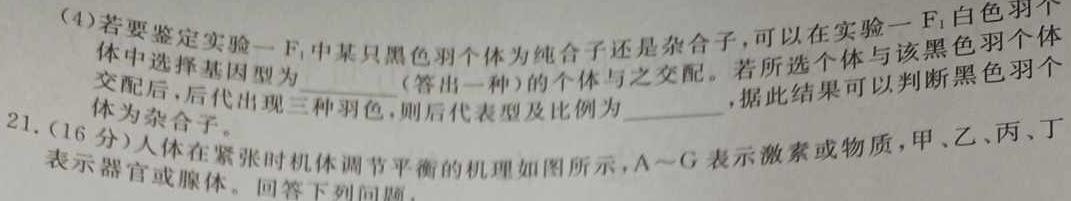 (4)若要鉴定实验一 F₁中某只黑色羽个体为纯合子还是杂合子,可以在实验一 F₁白色羽个
体中选择基因型为________(答出一种)的个体与之交配。若所选个体与该黑色羽个体
交配后,后代出现三种羽色,则后代表型及比例为________,据此结果可以判断黑色羽个
体为杂合子。
21.(16 分)人体在紧张时机体调节平衡的机理如图所示,A～G 表示激素或物质,甲、乙、丙、丁
表示器官或腺体。回答下列问题: